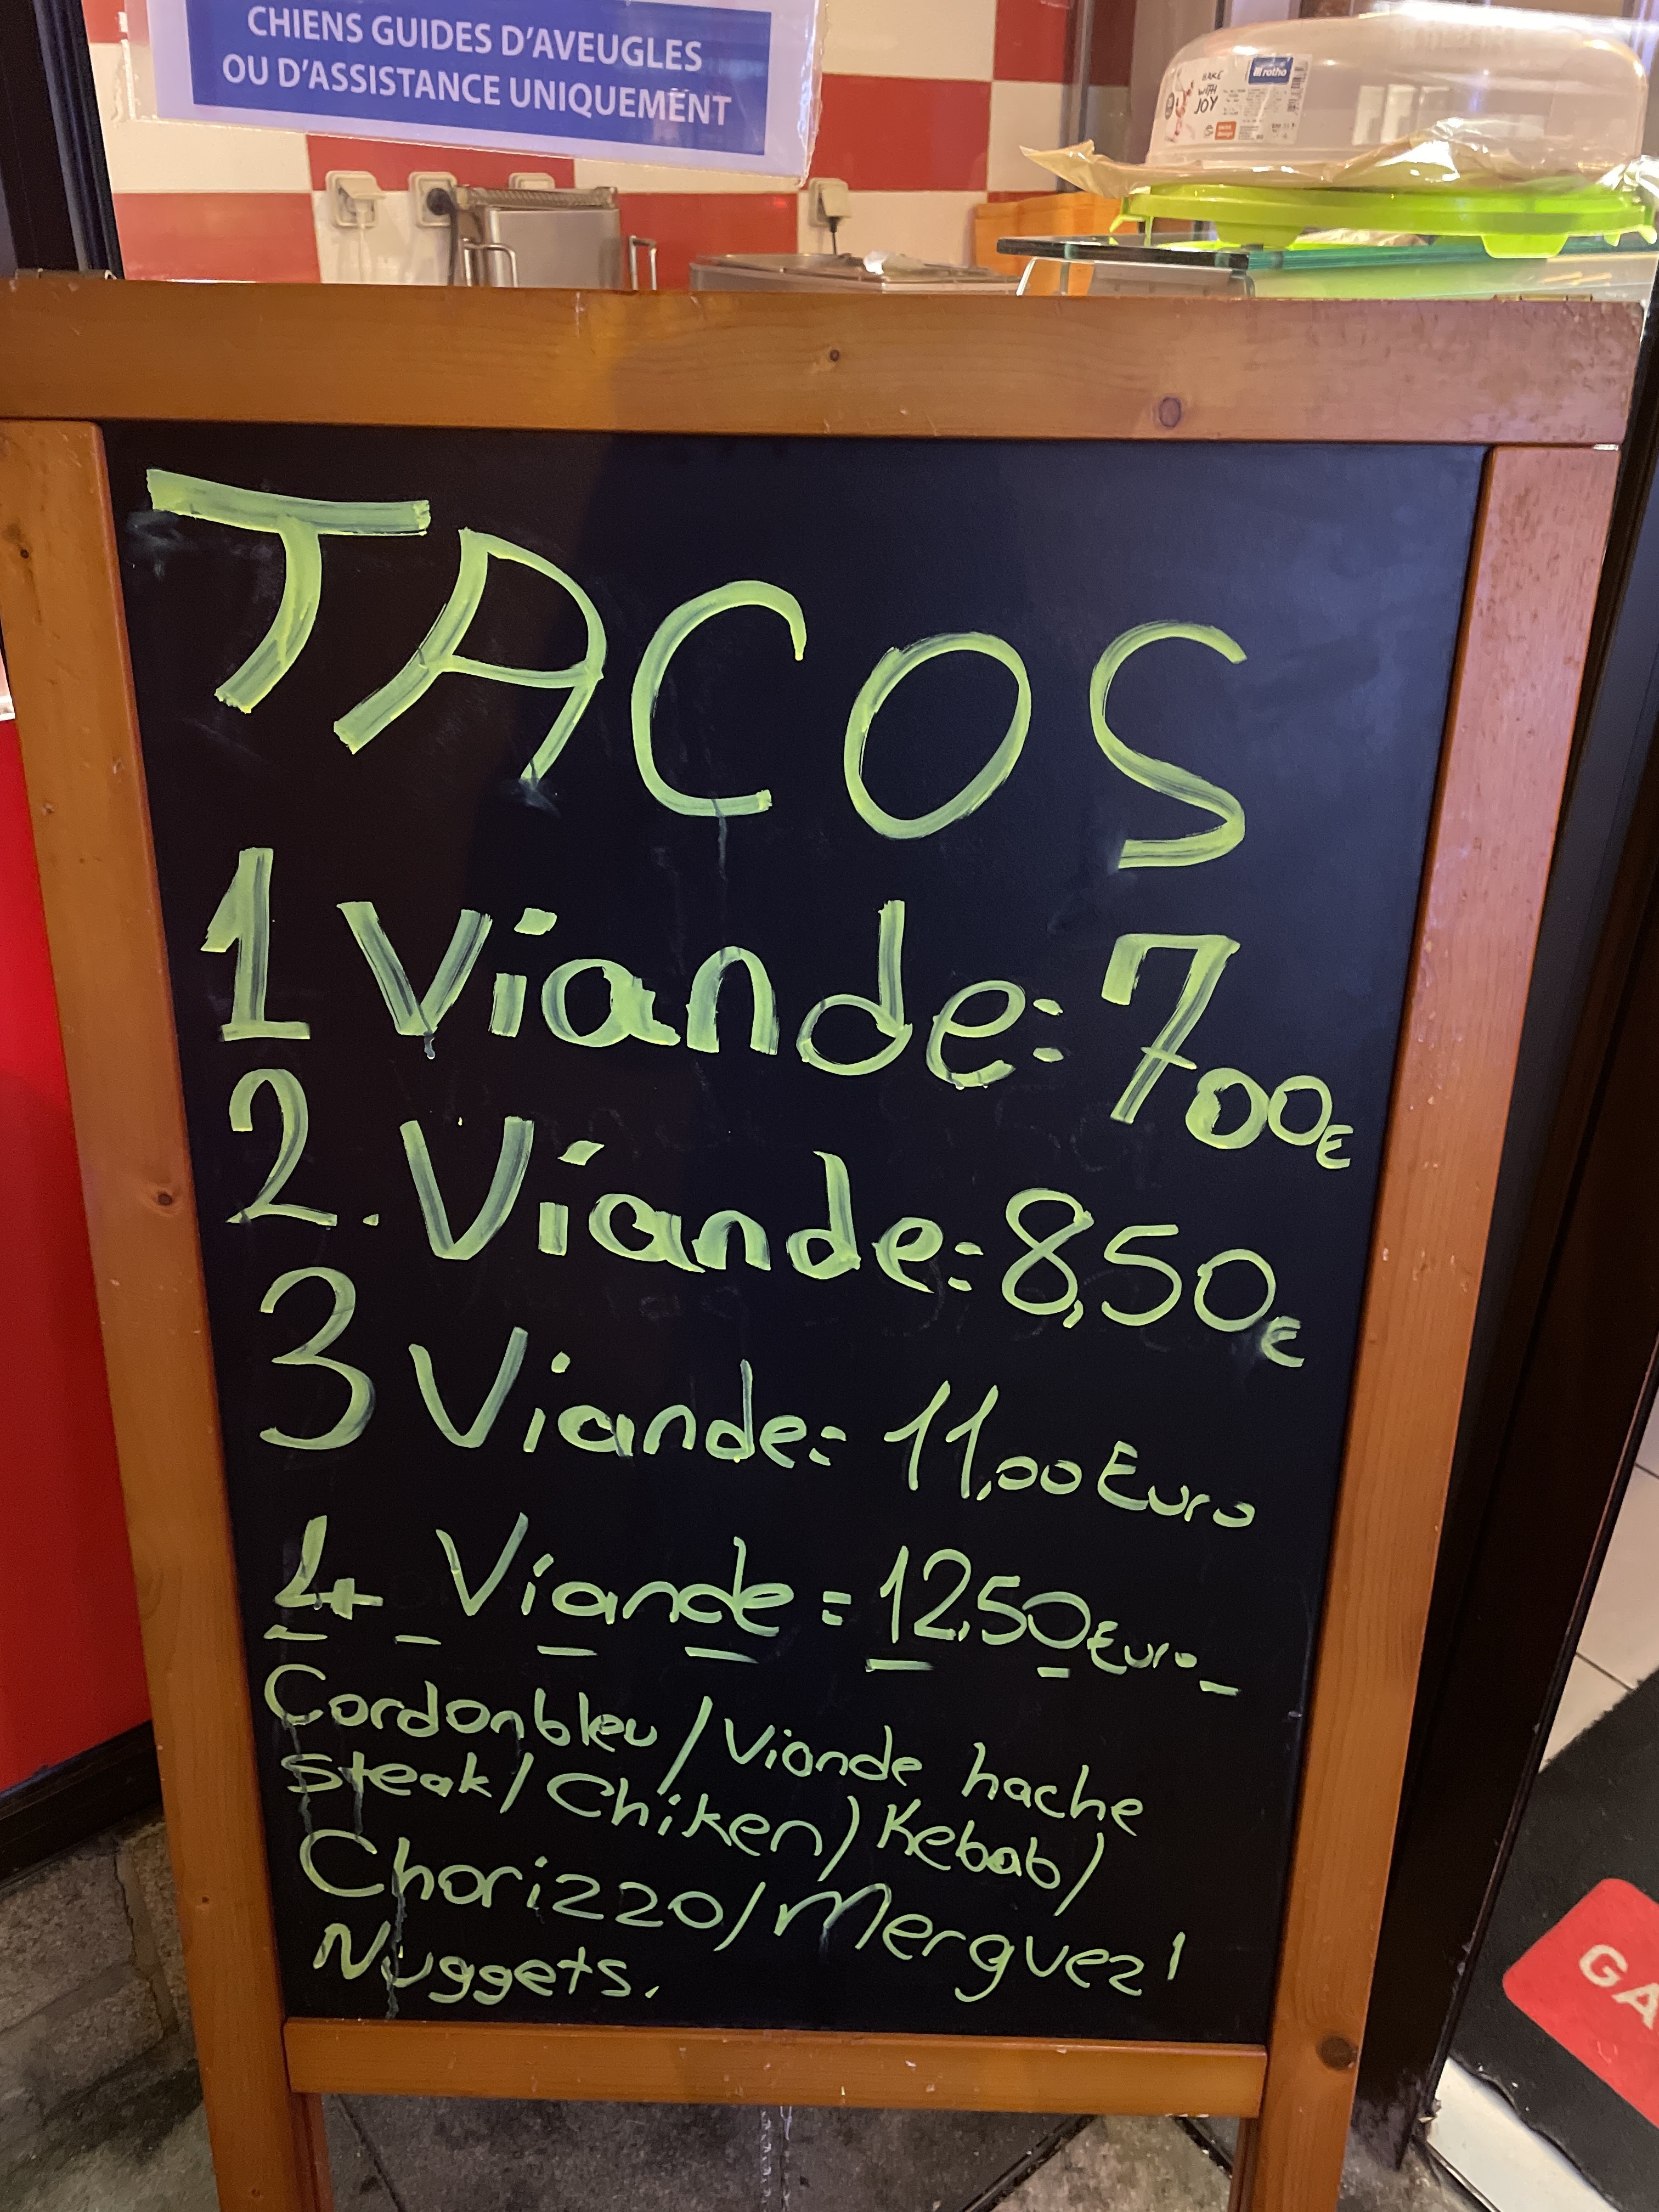 CHIENS GUIDES D'AVEUGLES
OU D'ASSISTANCE UNIQUEMENT
BAKE
WITH
JOY
rotho
TACOS
1 Viande: 700€
2. Viande: 8,50€
3 Viande: 11,00 Euro
4 Viande: 12,50 Euro
Cordonbleu / Viande hache
steak / Chiken / Kebab /
Chorizzo / Merguez /
Nuggets.
GA